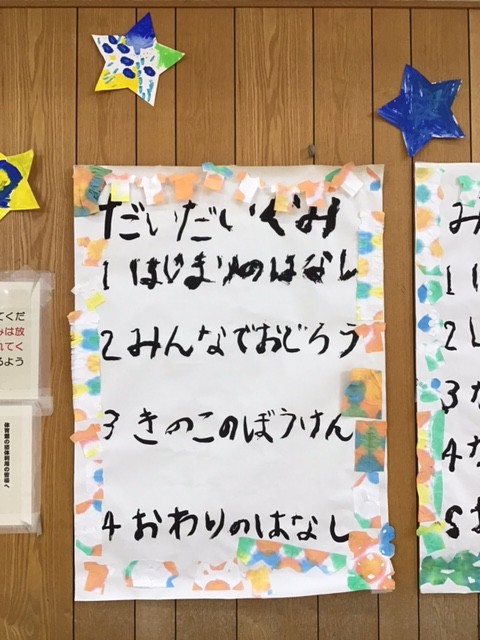 だいだいぐみ
1 はじまりのはなし
2 みんなでおどろう
3 きのこのぼうけん
4 おわりのはなし
てくだ
みは放
れてく
るよう
体育館の団体利用の皆様へ
み
1 は
2 し
3 な
4 な
5 お